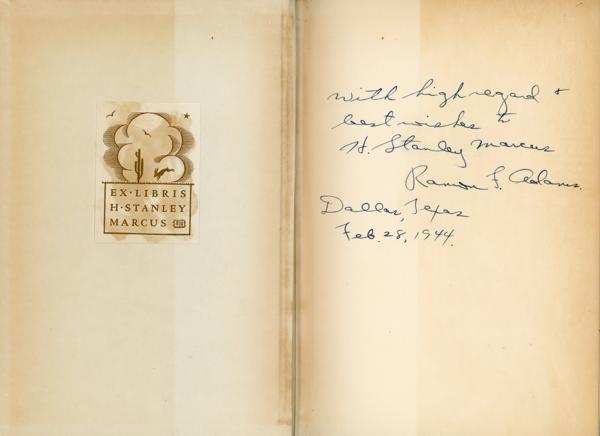 EX·LIBRIS
H·STANLEY
MARCUS
With high regard +
best wishes to
H. Stanley Marcus
Ramon F. Adams.
Dallas, Texas
Feb. 28, 1944.